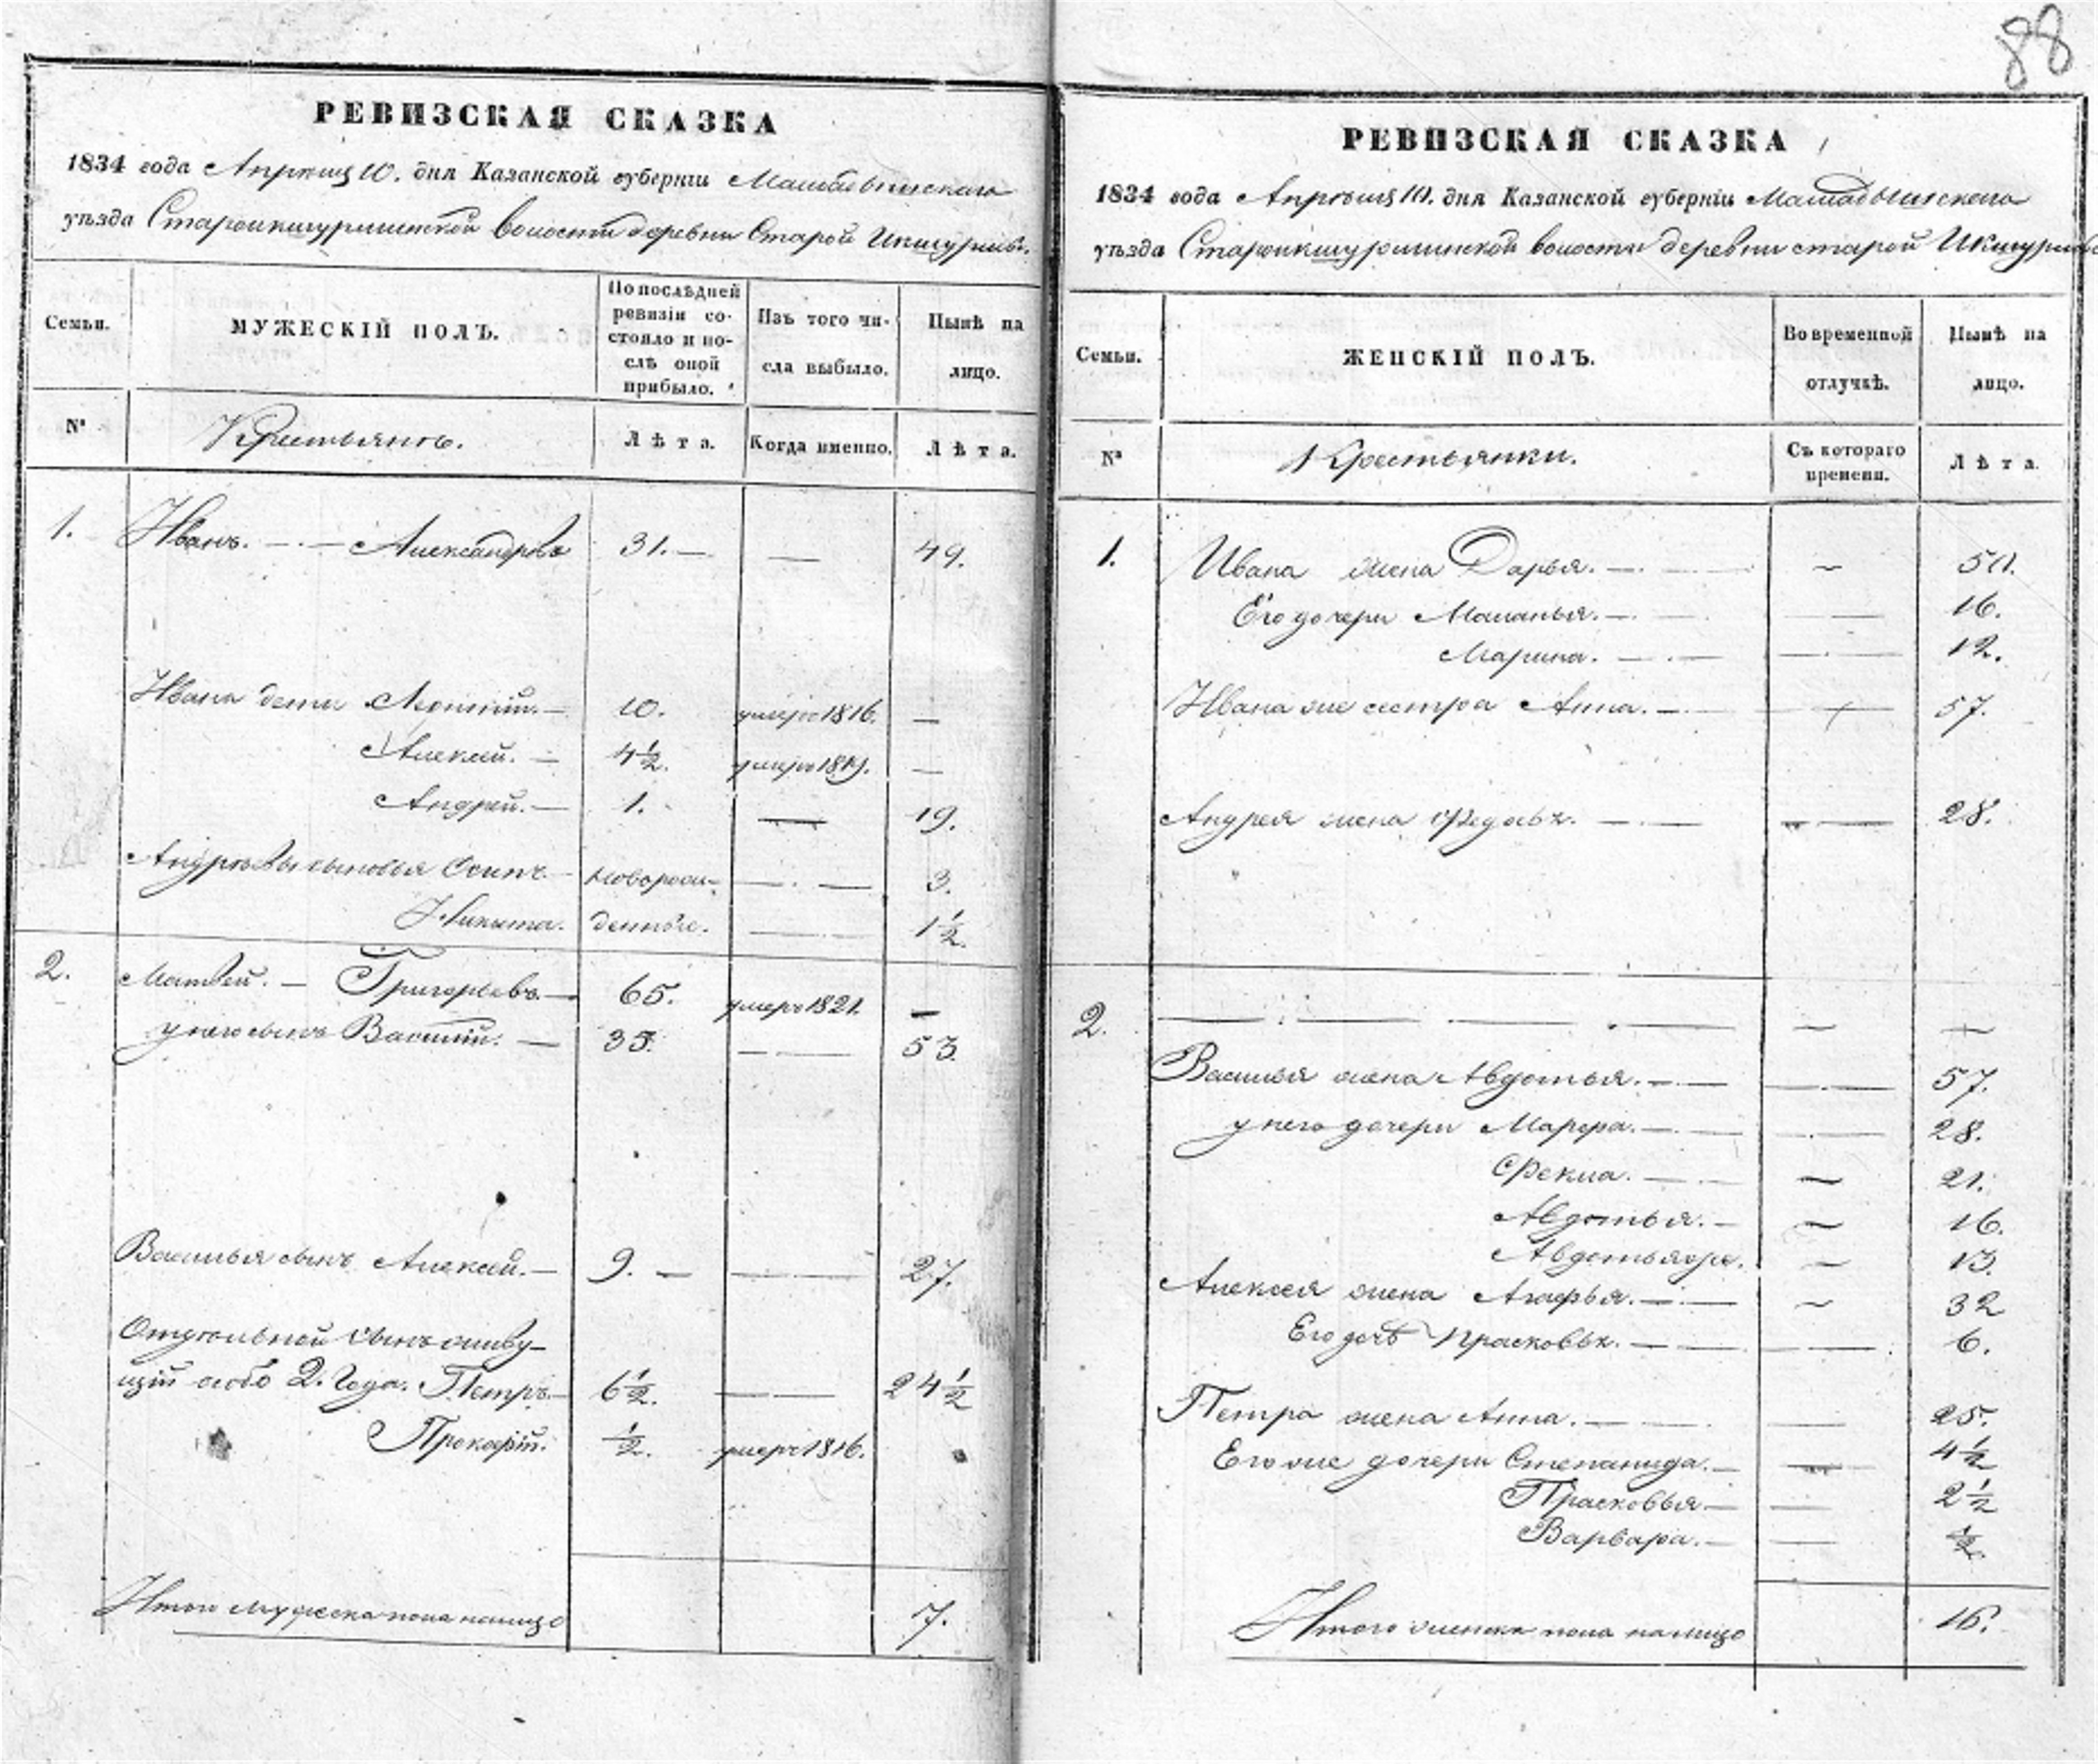 88
РЕВИЗСКАЯ СКАЗКА
1834 года Апреля 10. дня Казанской губерніи Мамадышскаго
уѣзда Староикшурминской волости деревни Старой Икшурмы.
Семьи.
МУЖЕСКІЙ ПОЛЪ.
По послѣдней
ревизіи со-
стояло и по-
слѣ оной
прибыло.
Изъ того чи-
сла выбыло.
Нынѣ на
лицо.
№
Крестьянъ.
Лѣта.
Когда именно.
Лѣта.
1. Иванъ. Александровъ 31. — — 49.
Ивана дети 10. умеръ 1816. —
Алексей. — 4½. умеръ —
Андрей. — 1. — 19.
Андреевы сыновья Осипъ новорож- — — 3.
Никита. денные. — 1½.
2. Матвей. — Григорьевъ. — 65. умеръ 1821. —
у него сынъ Василий. — 35. — — 53.
Василья сынъ Алексей. — 9. — — 27.
сынъ живу-
щій особо 2. года. Петръ. — 6½. — — 24½
Прокофій. ½. умеръ 1816.
Итого мужеска пола налицо 7.
РЕВИЗСКАЯ СКАЗКА
1834 года Апреля 10. дня Казанской губерніи Мамадышскаго
уѣзда Староикшурминской волости деревни старой Икшурмы
Семьи.
ЖЕНСКІЙ ПОЛЪ.
Во временной
отлучкѣ.
Нынѣ на
лицо.
№
Крестьянки.
Съ котораго
времени.
Лѣта.
1. Ивана жена Дарья. — — 50.
Его дочери Маланья. — — 16.
Марина. — — 12.
Ивана же сестра Анна. — — 57.
Андрея жена Федосья. — — 28.
2. — — — — — —
Василья жена Авдотья. — — 57.
у него дочери Марфа. — — 28.
Фекла. — — 21.
Авдотья. — — 16.
Авдотья же. — 13.
Алексея жена Агафья. — — 32
Его дочь Прасковья. — — 6.
Петра жена Анна. — — 25.
Его же дочери Степанида. — — 4½
Прасковья — — 2½
Варвара. — — ½.
Итого женска пола налицо 16.